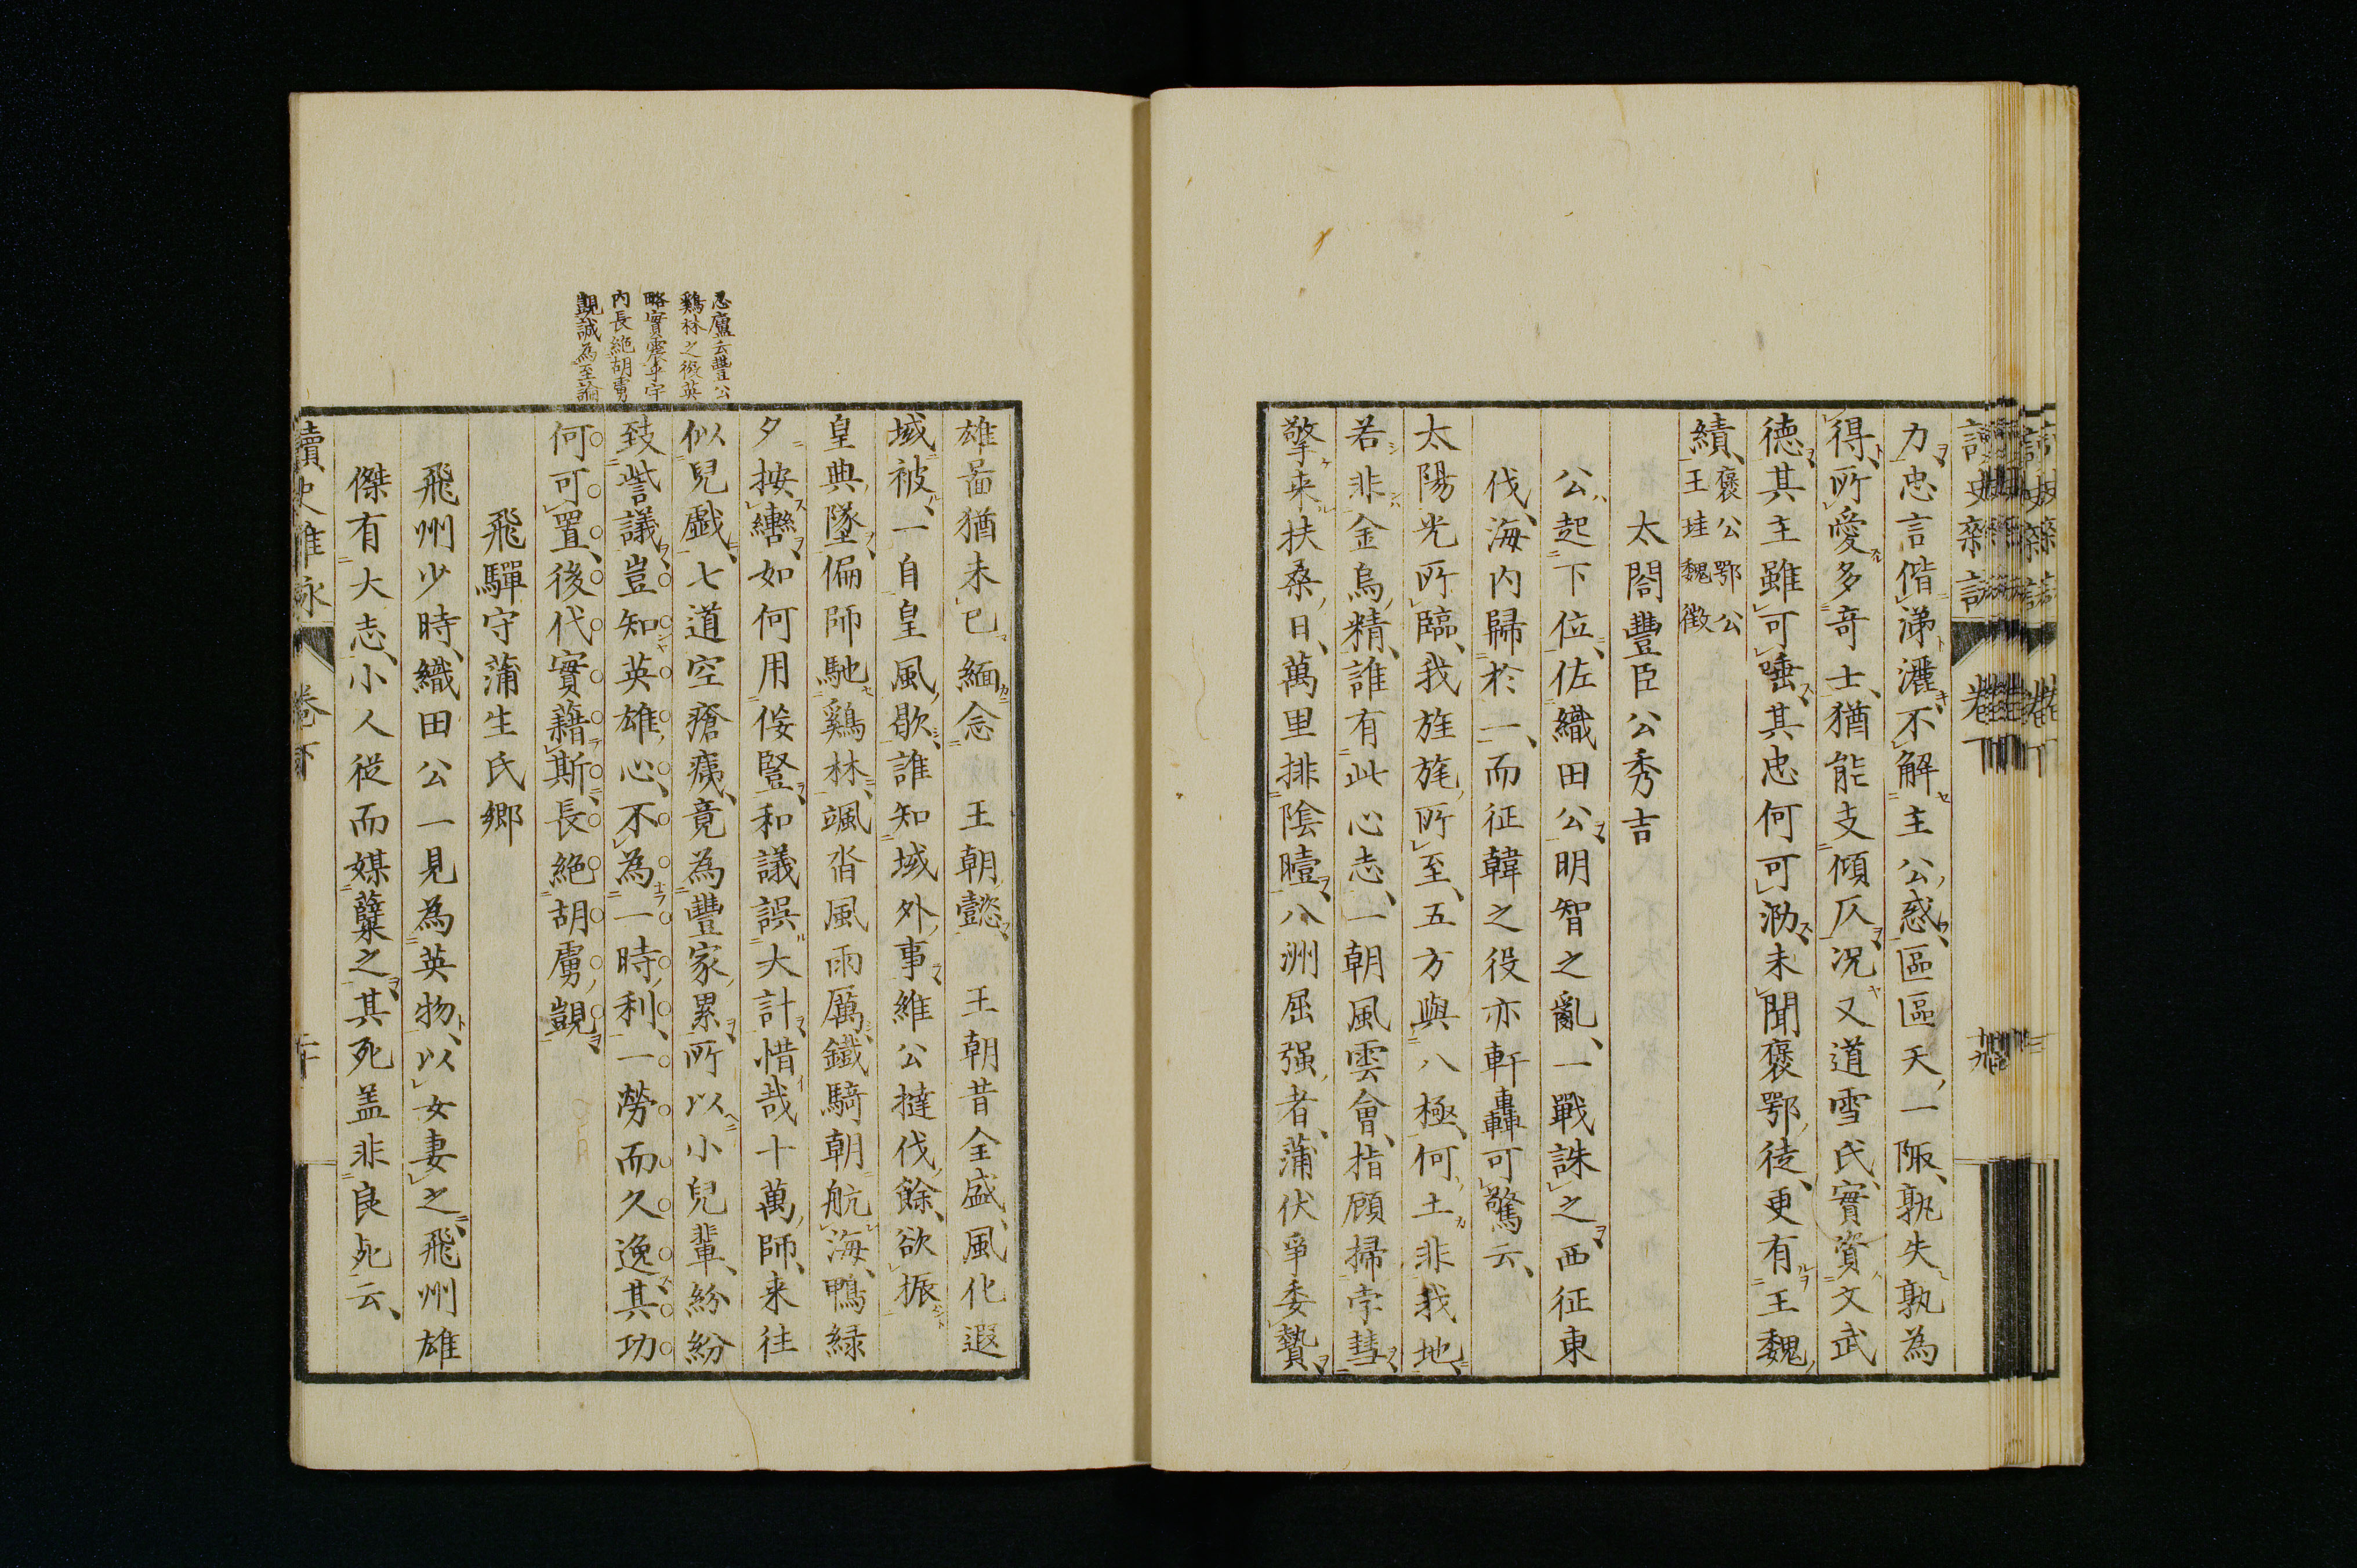 力忠言偕涕灑不解主公惑區區天一陬孰失孰為
得所愛多奇士猶能支傾仄况又道雪氏實資文武
徳其主雖可唾其忠何可泐未聞褒鄂徒更有王魏
績褒公鄂公王珪魏徴
太閤豐臣公秀吉
公起下位佐織田公明智之亂一戰誅之西征東
伐海内歸於一而征韓之役亦軒轟可驚云
太陽光所臨我旌旄所至五方與八極何土非我地
若非金烏精誰有此心志一朝風雲會指顧掃孛彗
擎来扶桑日萬里排陰曀八洲屈强者蒲伏爭委贄
雄啚猶未已緬念 王朝懿 王朝昔全盛風化遐
域被一自皇風歇誰知域外事維公撻伐餘欲振
皇典墜偏師馳鷄林颯沓風雨厲鐵騎朝航海鴨緑
夕按轡如何用佞豎和議誤大計惜哉十萬師来往
似兒戯七道空瘡痍竟為豐家累所以小兒輩紛紛
致訾議豈知英雄心不為一時利一勞而久逸其功
何可置後代實藉斯長絶胡虜覬
飛騨守蒲生氏郷
飛州少時織田公一見為英物以女妻之飛州雄
傑有大志小人従而媒糵之其死盖非良死云
忍廬云豐公
鷄林之役英
略實震乎宇
内長絶胡虜
覬誠為至論
讀史雜詠
卷下
二十